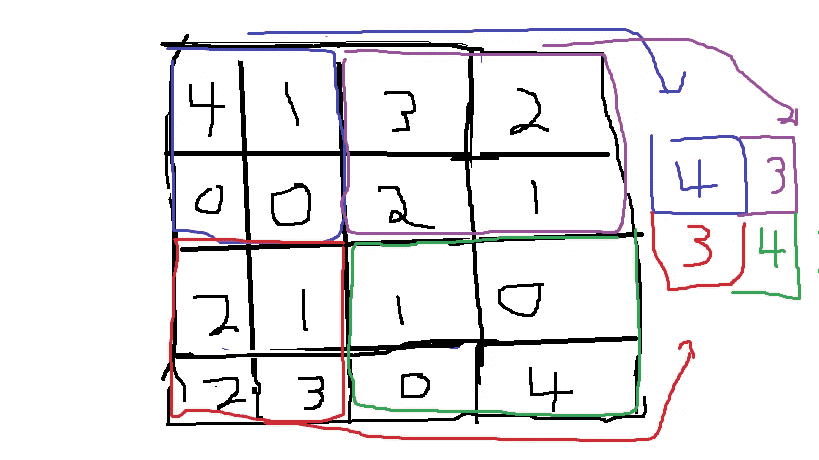 4 1 3 2
0 0 2 1
2 1 1 0
2 3 0 4
4 3
3 4